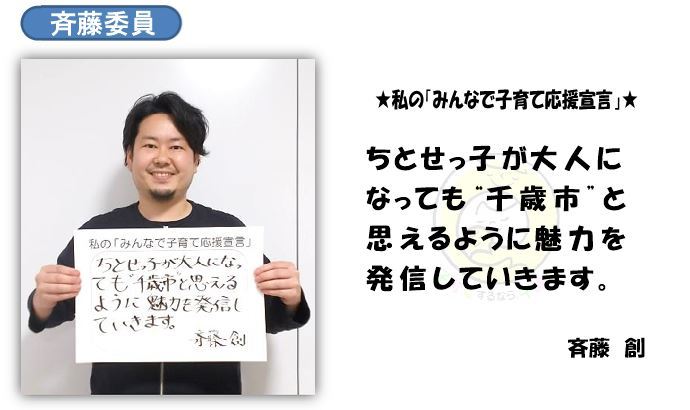 斉藤委員
私の「みんなで子育て応援宣言」
ちとせっ子が大人になっ
ても“千歳市”と思える
ように魅力を発信し
ていきます。
斉藤 創
★私の「みんなで子育て応援宣言」★
ちとせっ子が大人に
なっても“千歳市”と
思えるように魅力を
発信していきます。
するなっ
斉藤 創